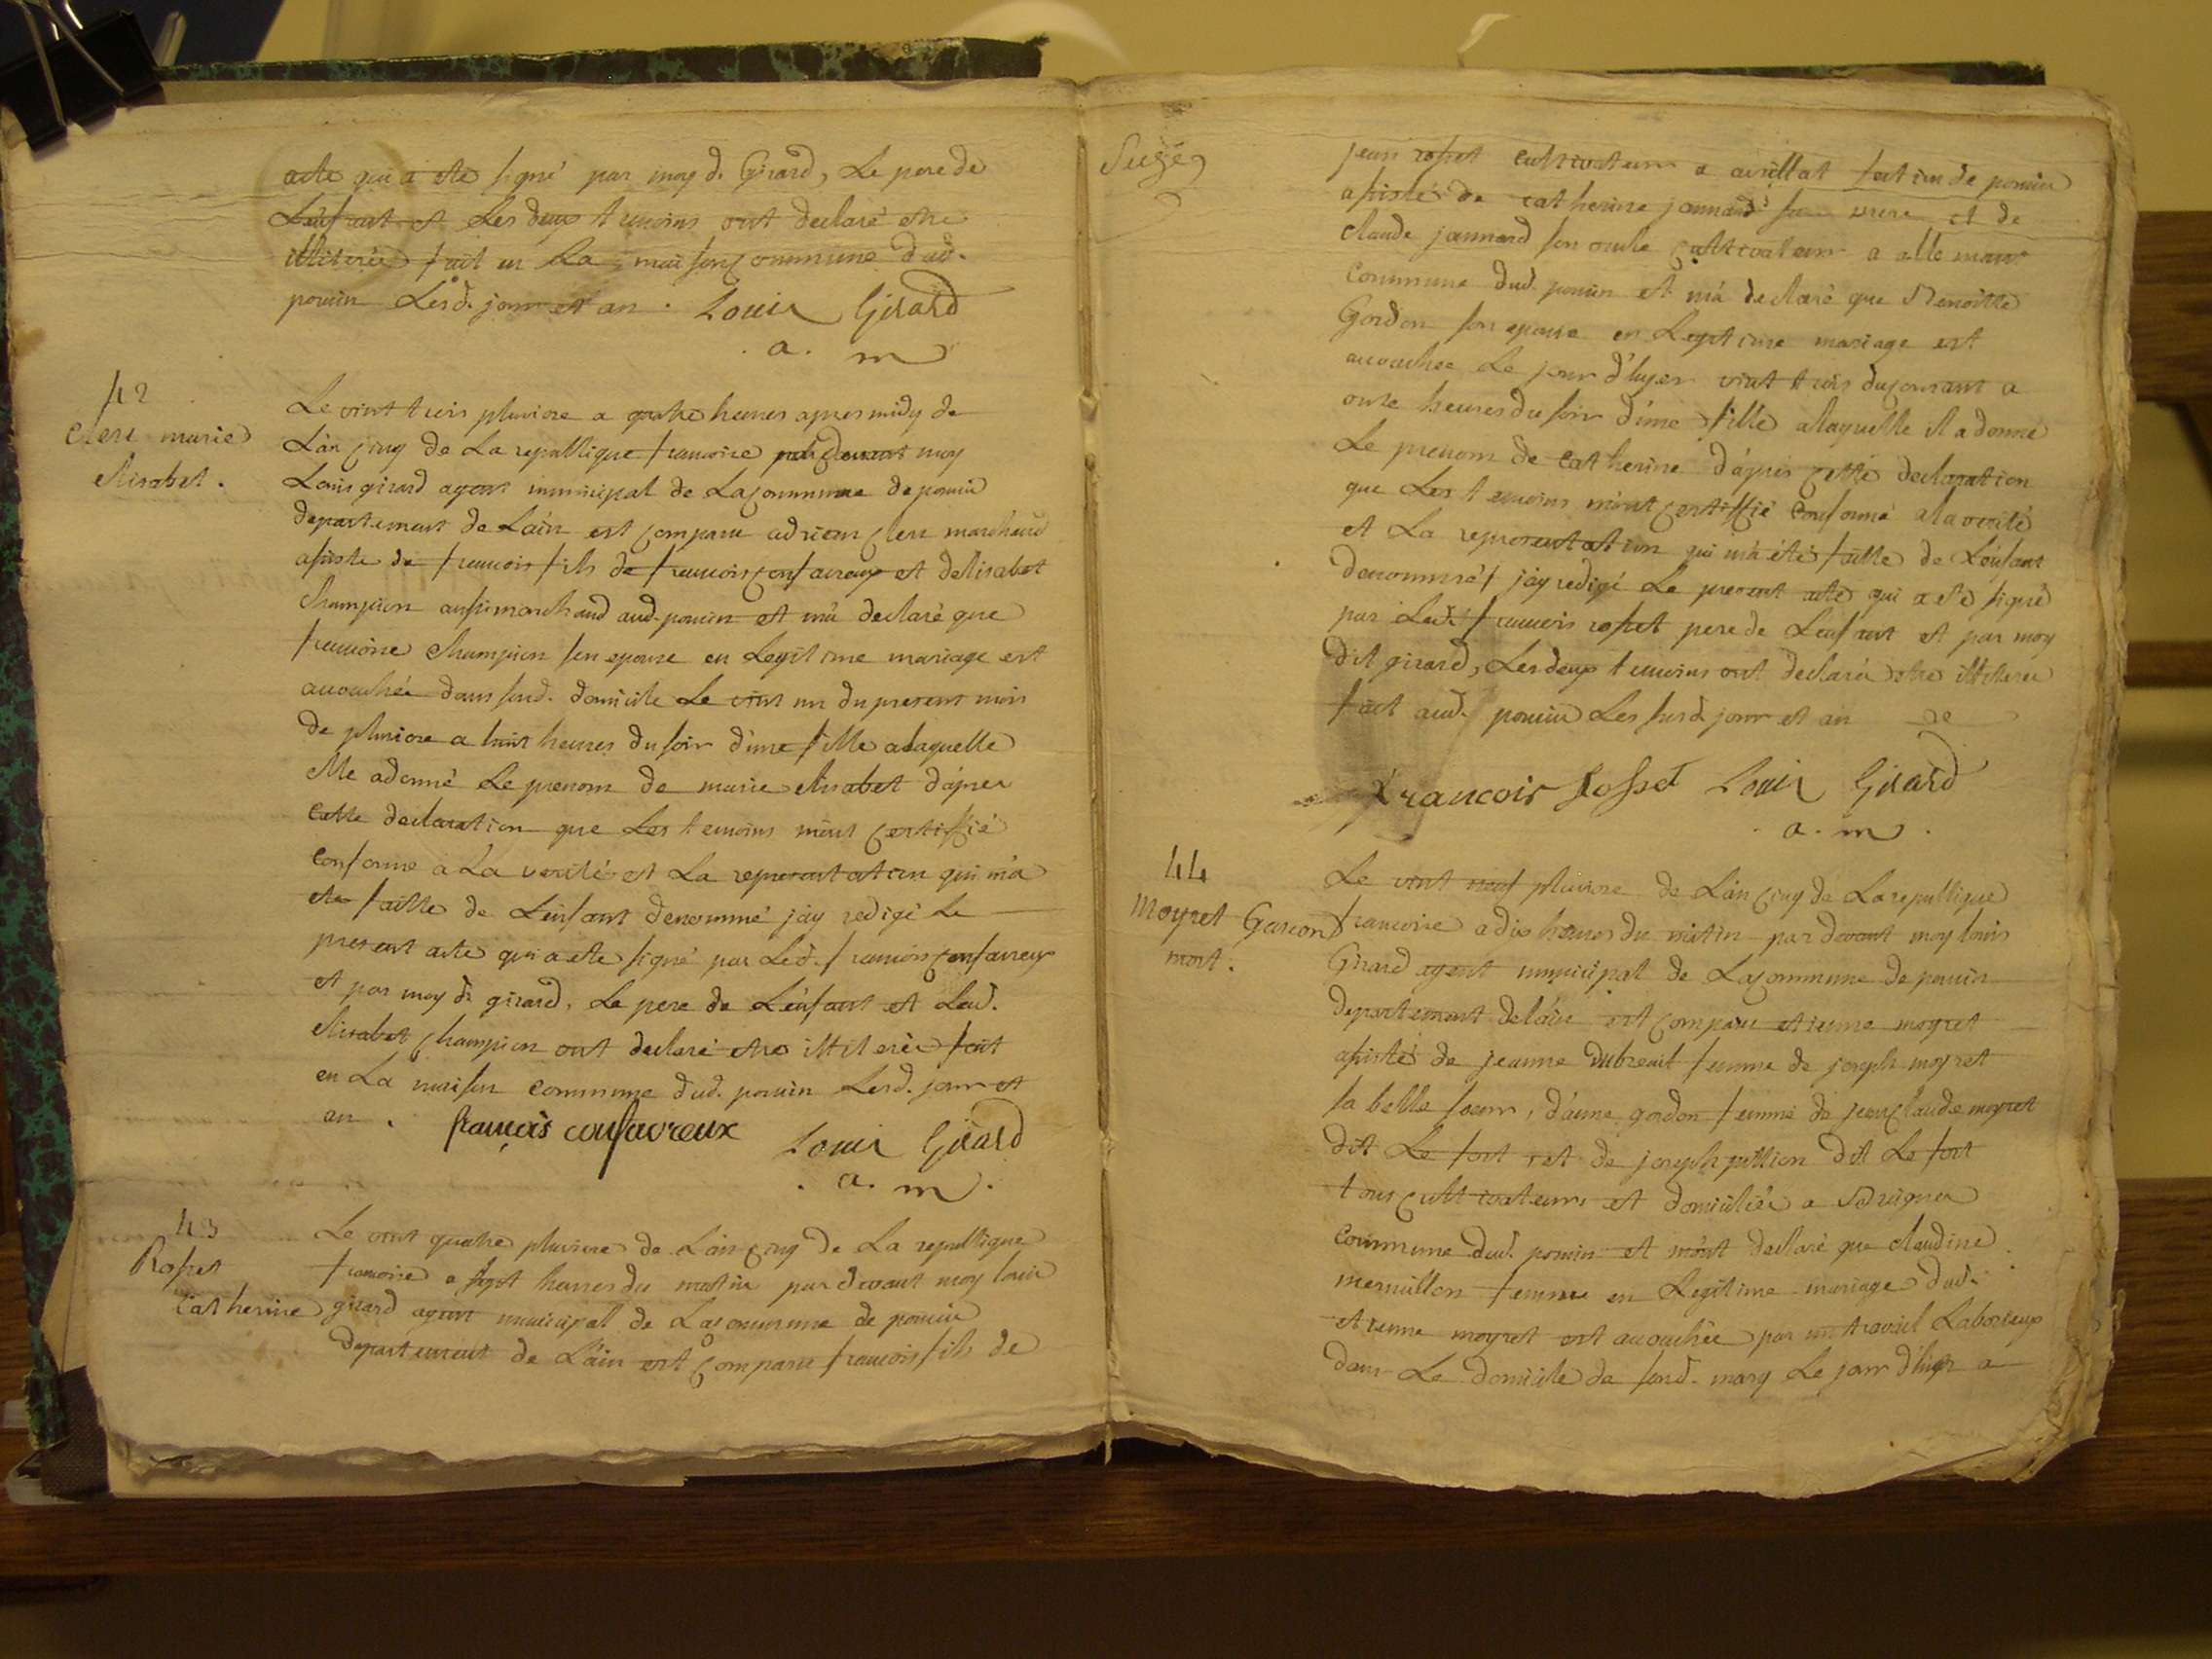 acte qui a ete signé par moy d. Girard, Le pere de
L'enfant et Les deux temoins ont declaré etre
illiterés fait en La maison commune dud.
poncin Lesd. jour et an . Louis Girard
a. m
42
Clerc marie
Elisabet .
Le vint trois pluviose a quatre heures apres midy de
L'an cinq de La republique francoise pardevant moy
Louis girard agent municipal de La commune de poncin
departement de L'ain est comparu adrien clerc marchand
assisté de francois fils de francois confavreux et d'elisabet
Champion aussi marchand aud. poncin et m'a declaré que
francoise Champion son epouse en Legitime mariage est
accouchée dans sond. domicile Le vint un du present mois
de pluviose a huit heures du soir d'une fille a laquelle
Elle a donné Le prenom de marie Elisabet d'apres
Cette declaration que Les temoins m'ont certiffié
Conforme a La verité et La representation qui m'a
ete faitte de L'enfant denommé j'ay redigé Le
present acte qui a ete signé par Led. francois confavreux
et par moy d. girard. Le pere de L'enfant et Lad.
Elisabet Champion ont declaré etre illiterés fait
en La maison commune dud. poncin Lesd. jour et
an . françois confavreux Louis Girard
a. m.
43
Rosset
Catherine
Le vint quatre pluviose de L'an cinq de La republique
francoise a sept heures du matin pardevant moy Louis
girard agent municipal de La commune de poncin
departement de L'ain est comparu francois fils de
jean rosset cultivateur a avrillat section de poncin
assisté de catherine jannard sa mere et de
claude jannard son oncle cultivateur a allemant
Commune dud. poncin et m'a declaré que Benoitte
Gordon son epouse en Legitime mariage est
accouchée Le jour d'hyer vint trois du courant a
onze heures du soir d'une fille a laquelle il a donné
Le prenom de catherine d'apres cette declaration
que Les temoins m'ont certiffié conforme a la verité
et La representation qui m'a été faitte de L'enfant
denommé j'ay redigé Le present acte qui a ete signé
par Led. francois rosset pere de L'enfant et par moy
dit girard, Les deux temoins ont declaré etre illiterés
fait aud. poncin Les susd. jour et an
francois Rosset Louis Girard
a. m.
44
Moyret Garcon
mort .
Le vint neuf pluviose de L'an cinq de La republique
francoise a dix heures du matin pardevant moy Louis
Girard agent municipal de La commune de poncin
departement de l'ain est comparu etienne moyret
assisté de jeanne dubreuil femme de joseph moyret
sa belle soeur, d'anne gordon femme de jean claude moyret
dit Le fort et de joseph dit Le fort
tous cultivateurs et domiciliés a
Commune dud. poncin et m'ont declaré que claudine
mermillon femme en Legitime mariage dud.
etienne moyret est accouchée par un travail Laborieux
dans Le domicile de sond. mary Le jour d'hyer a